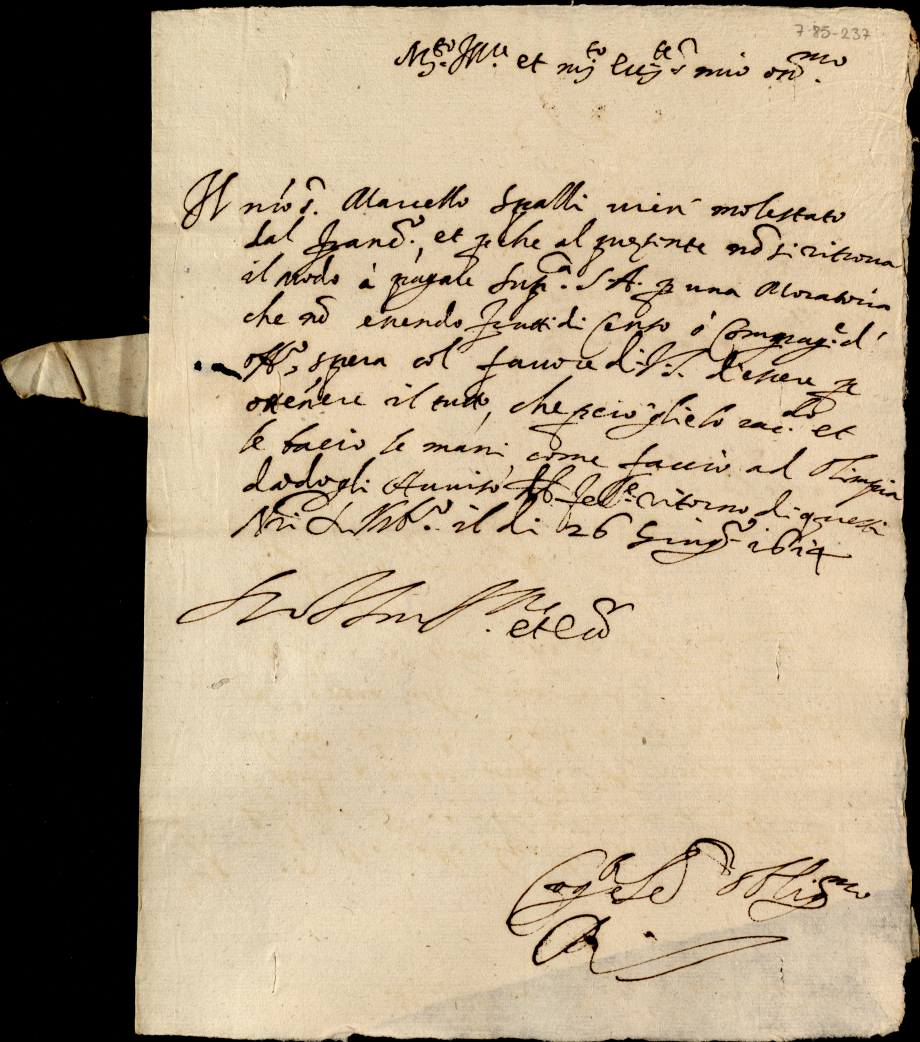 7-85-237
M.to Ill.re et m.to ecc.te s.r mio on.mo
Il n'ro s.r Marcello Spalli vien molestato
dal et p che al presente nõ si ritrova
il modo à pagale Sup.ca S A. p una Moratoria
che nõ essendo frutti di Censo ò Compag.e d'
off.o, spera col' favore di V.S. d'essere p
ottenere il tutto, che p ciò glielo rac.do et
le bacio le mani come faccio ad Olimpia
dãdogli Auviso fel.e ritorno di questi
N'ri il di 26 Giug.o 1614
et ecc.
Cog.to e Se.r obblig.mo